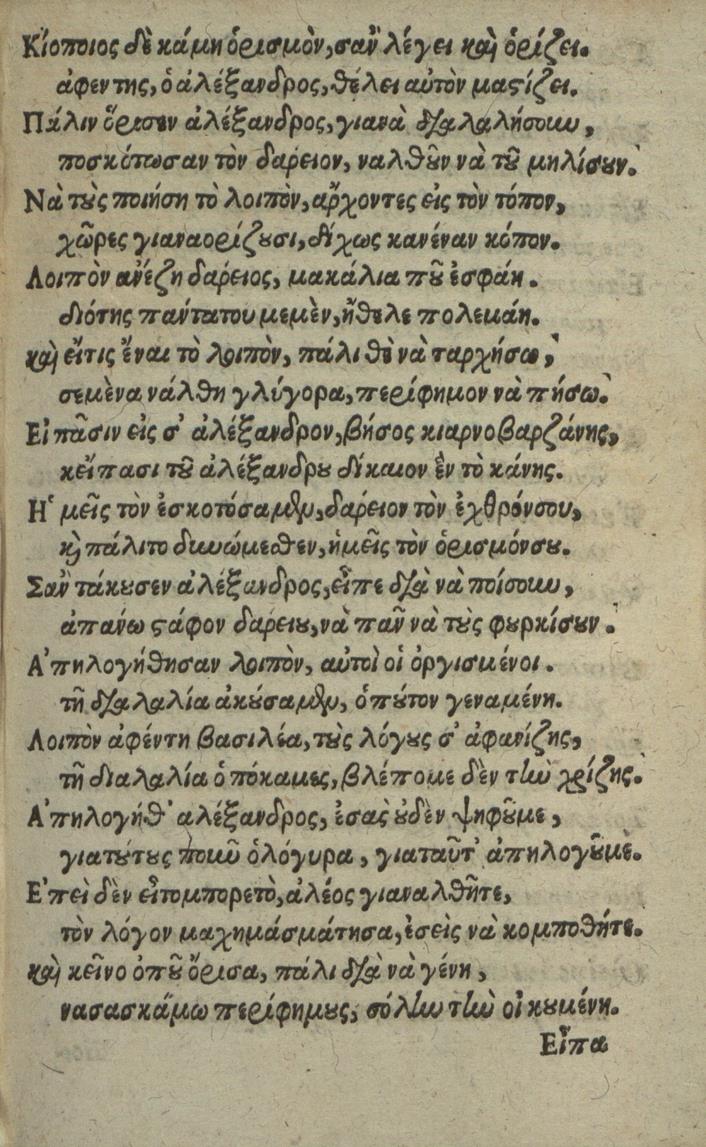 Κίοποιος δὲ κάμη ὁρισμὸν, σαν λέγει καὶ ὁρίζει.
ἀφεντης, ὁ ἀλέξανδρος, θέλει αὐτὸν μαςίζει.
Πάλιν ὅρισεν ἀλέξανδρος, γιανὰ διαλαλήσουν,
ποσκότωσαν τὸν δαρειον, ναλθοῦν νὰ τοῦ μηλίσουν.
Νὰ τοὺς ποιήση τὸ λοιπὸν, ἄρχοντες εἰς τὸν τόπον,
χῶρες γιαναορίζουσι, δίχως κανέναν κόπον.
Λοιπὸν ανέζη δαρειος, μακάλια ποῦ ἐσφάη.
διότης πάντατου μεμὲν, ἤθελε πολεμάη.
καὶ εἴτις ἔναι τὸ λοιπὸν, πάλι θὲ νὰ ταρχήσω,
σεμὲνα νάλθη γλύγορα, περίφημον νὰ πήσω.
Εἰπᾶσιν εἰς σ' ἀλέξανδρον, βήσος κιαρνοβαρζάνης,
κεἴπασι τοῦ ἀλέξανδρου δίκαιον ἒν τὸ κάνης.
Ἡ μεῖς τὸν ἐσκοτόσαμεν, δαρειον τὸν ἐχθρόνσου,
κὶ πάλιτο δινώμεσθεν, ἡμεῖς τὸν ὁρισμόνσου.
Σαν τάκουσεν ἀλέξανδρος, εἶπε διὰ νὰ ποίσουν,
ἀπανω ςάφον δαρειου, νὰ παν νὰ τοὺς φουρκίσουν.
Ἀπηλογήθησαν λοιπὸν, αὐτοὶ οἱ ὀργισμένοι.
τῆ διαλαλία ἀκούσαμεν, ὁπούτον γεναμένη.
Λοιπὸν ἀφέντη βασιλέα, τοὺς λόγους σ' ἀφανίζης,
τῆ διαλαλία ὁπόκαμες, βλέπομε δὲν τὴν χρίζης.
Ἀπηλογήθ' αλέξανδρος, ἐσας οὐδὲν ψηφοῦμε,
γιατούτους ποκοῦ ὁλόγυρα, γιαταῦτ' ἀπηλογοῦμε.
Ἐπεὶ δὲν εἶτομπορετὸ, ἀλέος γιαναλθῆτε,
τὸν λόγον μαχημάσμάτησα, ἐσεὶς νὰ κομποθήτε.
καὶ κεῖνο ὁποῦ ὅρισα, πάλι διὰ νὰ γένη,
νασασκάμω περίφημους, σόλην τὴν οἰκουμένη.
Εἶπα